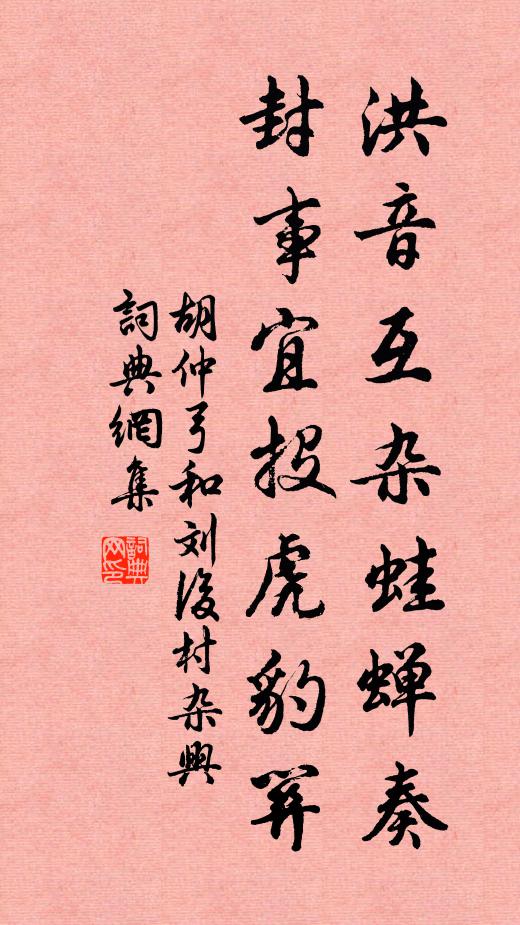 洪音互杂蛙蝉奏
封事宜投虎豹关
胡仲弓和刘後村杂興
詞典網集
詞典網印